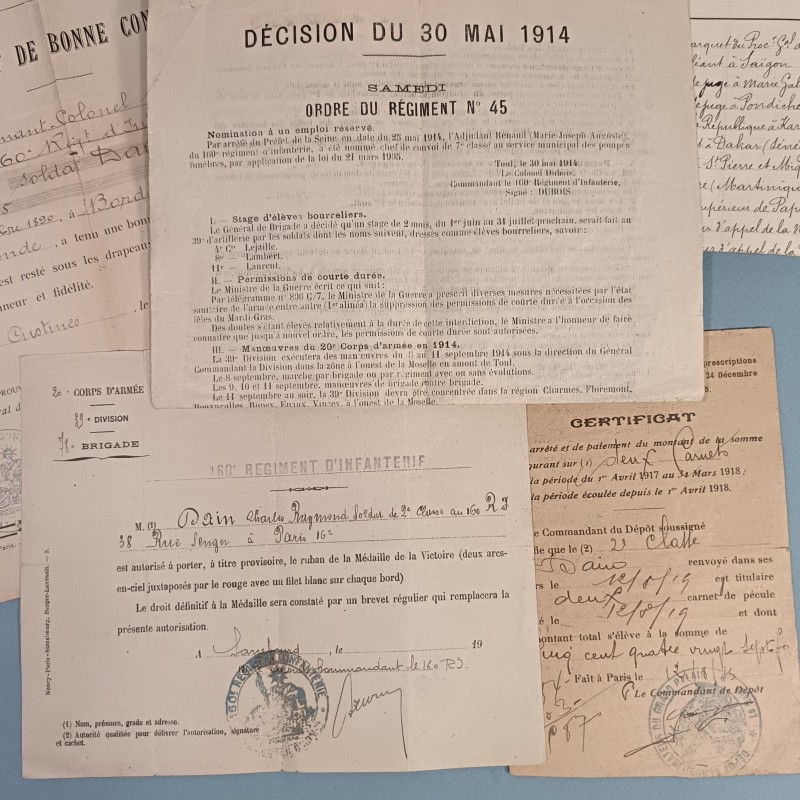 DE BONNE CON
-Colonel
60e Régt d'In
Soldat Dai
1890, à Bord
, a tenu une bon
est resté sous les drapeau
neur et fidélité.
Custines, le
DÉCISION DU 30 MAI 1914
SAMEDI
ORDRE DU RÉGIMENT N° 45
Nomination à un emploi réservé.
Par arrêté du Préfet de la Seine en date du 25 mai 1914, l'Adjudant Renaud (Marie-Joseph-Auguste)
du 160e régiment d'infanterie, a été nommé chef de convoi de 7e classe au service municipal des pompes
funèbres, par application de la loi du 21 mars 1905.
Toul, le 30 mai 1914.
Le Colonel Dubois,
Commandant le 160e Régiment d'Infanterie,
Signé : DUBOIS.
I. — Stage d'élèves bourreliers.
Le Général de Brigade a décidé qu'un stage de 2 mois, du 1er juin au 31 juillet prochain, serait fait au
39e d'artillerie par les soldats dont les noms suivent, dressés comme élèves bourreliers, savoir :
4e Cie Lejaille.
8e — Lambert.
11e — Laurent.
II. — Permissions de courte durée.
Le Ministre de la Guerre écrit ce qui suit :
Par télégramme n° 896 C/7, le Ministre de la Guerre a prescrit diverses mesures nécessitées par l'état
sanitaire de l'armée entre autre (1er alinéa) la suppression des permissions de courte durée à l'occasion des
fêtes du Mardi-Gras.
Des doutes s'étant élevés relativement à la durée de cette interdiction, le Ministre a l'honneur de faire
connaître que jusqu'à nouvel ordre, les permissions de courte durée sont autorisées.
III. — Manœuvres du 20e Corps d'armée en 1914.
La 39e Division exécutera des manœuvres du 8 au 11 septembre 1914 sous la direction du Général
Commandant la Division dans la zône à l'ouest de la Moselle en amont de Toul.
Le 8 septembre, marche par brigade ou par régiment avec ou sans évolutions.
Les 9, 10 et 11 septembre, manœuvres de brigade contre brigade.
Le 11 septembre au soir, la 39e Division devra être concentrée dans la région Charmes, Floremont,
à l'ouest de la Moselle.
arquet du Proc. Gal
à Saïgon
juge à Marie Gal
juge à Pondiche
République à Kar
à Dakar (Séné
St Pierre et Miq
(Martinique
upérieur de Pap
d'appel de la
d'appel de la
20e CORPS D'ARMÉE
39e DIVISION
78e BRIGADE
160e REGIMENT D'INFANTERIE
M. (1) Dain Charles Raymond Soldat de 2e Classe au 160 R I
38 Rue Singer à Paris 16e
est autorisé à porter, à titre provisoire, le ruban de la Médaille de la Victoire (deux arcs-
en-ciel juxtaposés par le rouge avec un filet blanc sur chaque bord).
Le droit définitif à la Médaille sera constaté par un brevet régulier qui remplacera la
présente autorisation.
A Sarrebourg, le 19
Commandant le 160 RI
160e REGIMENT D'INFANTERIE
(1) Nom, prénoms, grade et adresse.
(2) Autorité qualifiée pour délivrer l'autorisation, signature
et cachet.
Nancy-Paris-Strasbourg, Berger-Levrault. — 3.
prescriptions
24 Décembre
CERTIFICAT
arrêté et de paiement du montant de la somme
gurant sur (1) deux Carnets
la période du 1er Avril 1917 au 31 Mars 1918 ;
la période écoulée depuis le 1er Avril 1918.
e Commandant du Dépôt soussigné
ifie que le (2) 2e Classe
Dain renvoyé dans ses
rs le 12/8/19 est titulaire
deux carnet de pécule
é le 12/8/19 et dont
montant total s'élève à la somme de
cinq cent quatre vingt sept f
Fait à Paris le
Le Commandant de Dépôt
87